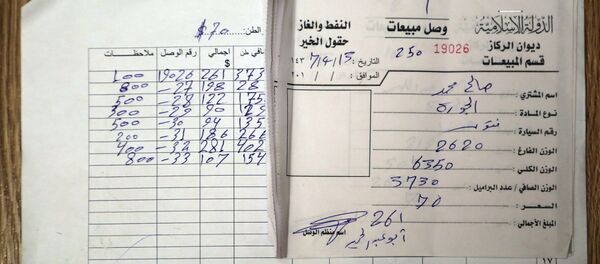 الدولة الإسلامية
ديوان الركاز
قسم المبيعات
وصل مبيعات
النفط والغاز
حقول الخير
19026
250
التاريخ: 15/4/7 ١٤٣
الموافق: / / ٢٠١
اسم المشتري: صالح محمد
نوع المادة:
رقم السيارة:
الوزن الفارغ: 2620
الوزن الكلي: 6350
الوزن الصافي / عدد البراميل: 3730
السعر: 70
المبلغ الأجمالي: 261
اسم منظم الوصل
الطن: $ 70
صافي طن اجمالي $ رقم الوصل ملاحظات
373 261 19026
28 198 -27 800
175 122 -28 500
-29
135 94 -30 500
266 186 -31 200
402 281 -32 400
154 107 -33 800
١٧